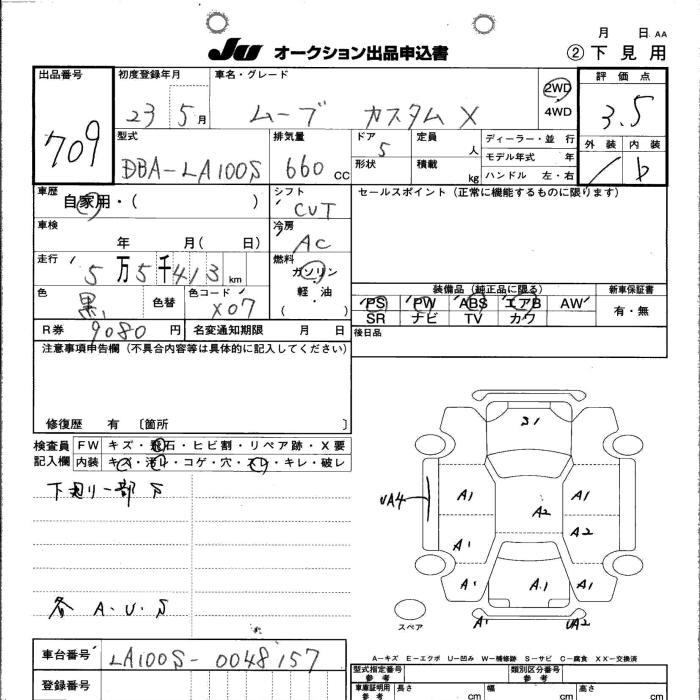 月 日 AA
JU オークション出品申込書 ②下見用
出品番号 初度登録年月 車名・グレード 2WD 評価点
709 23 5月 ムーブ カスタム X 4WD 3.5
型式 排気量 ドア 定員 ディーラー・並 行 外装 内装
DBA-LA100S 660 CC 5 人 モデル年式 年
形状 積載 kg ハンドル 左・右 b
車歴 シフト セールスポイント (正常に機能するものに限ります)
自家用・( ) CVT
車検 冷房
年 月( 日) AC
走行 燃料
5万5千413 km ガソリン
色 色替 色コード 軽・油 装備品 (純正品に限る) 新車保証書
黒 X07 ( ) PS PW ABS エアB AW 有・無
SR ナビ TV カワ
R券 9080 円 名変通知期限 月 日 後日品
注意事項申告欄 (不具合内容等は具体的に記入してください)
修復歴 有 〔箇所 〕
検査員 FW キズ・飛石・ヒビ割・リペア跡・X要
記入欄 内装 キズ・汚レ・コゲ・穴・スレ・キレ・破レ
下廻り一部S
各 A.U.S
A1 A1
UA4 A2
A1 A2
A1 A1 A1
スペア A1 UA2
A-キズ E-エクボ U-凹み W-補修跡 S-サビ C-腐食 XX-交換済
車台番号 LA100S-0048157
型式指定番号 参考 類別区分番号 参考
登録番号 車庫証明用 参考 長さ cm 幅 cm 高さ cm